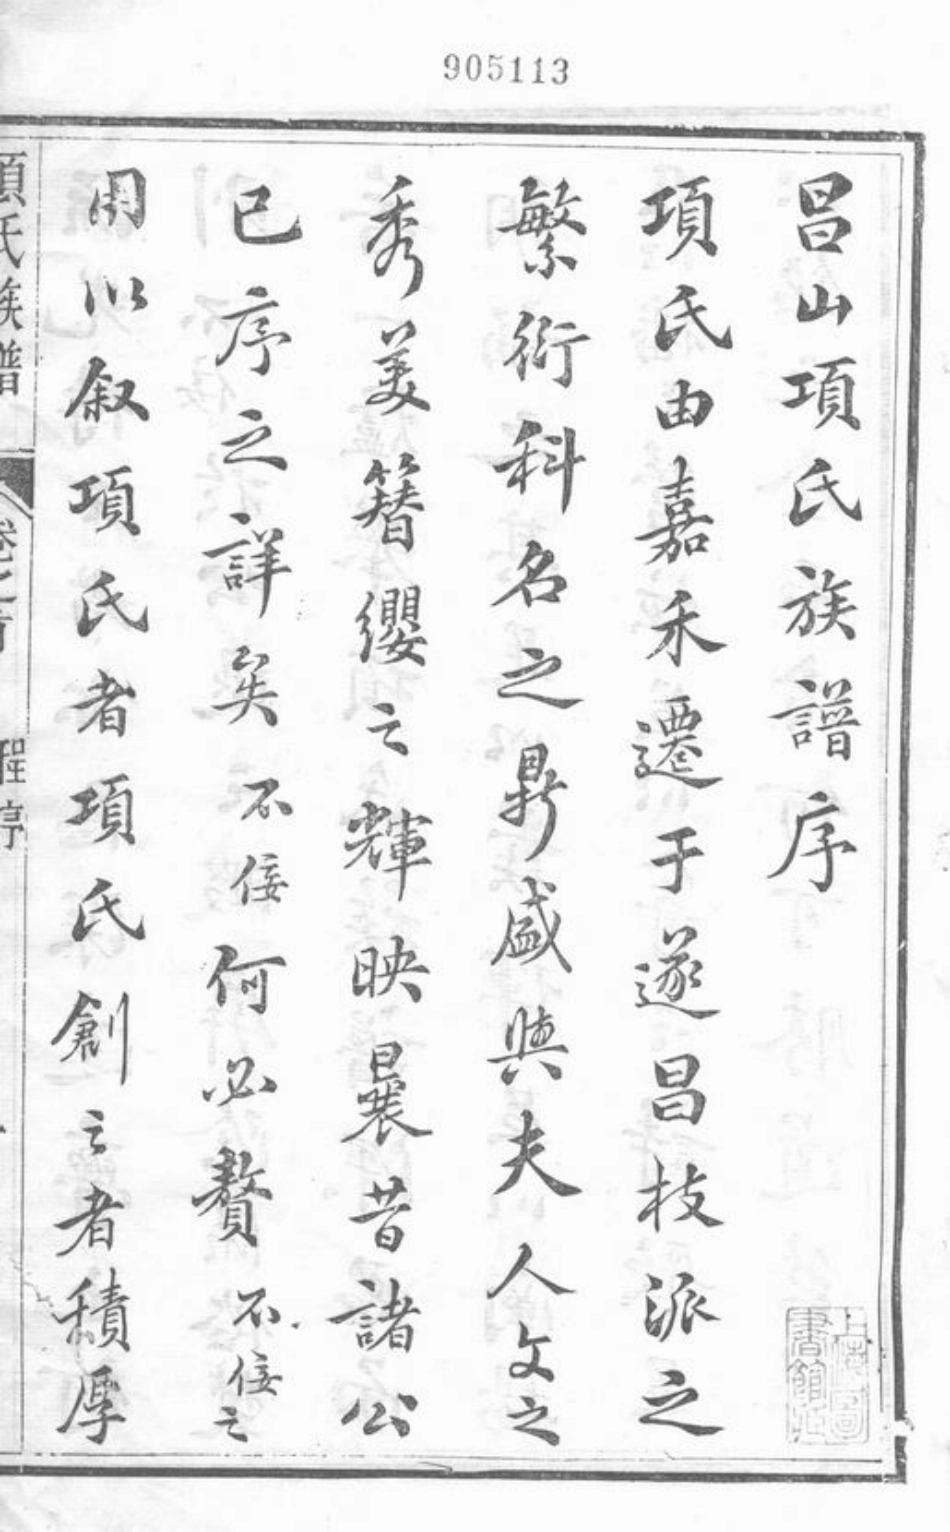 905113
昌山項氏族譜序
項氏由嘉禾遷于遂昌枝派之
繁衍科名之鼎盛與夫人文之
秀美簪纓之輝映曩昔諸公
已序之詳矣不佞何必贅不佞之
用以叙項氏者項氏創之者積厚
項氏族譜 卷之首 程序
上海圖書館藏